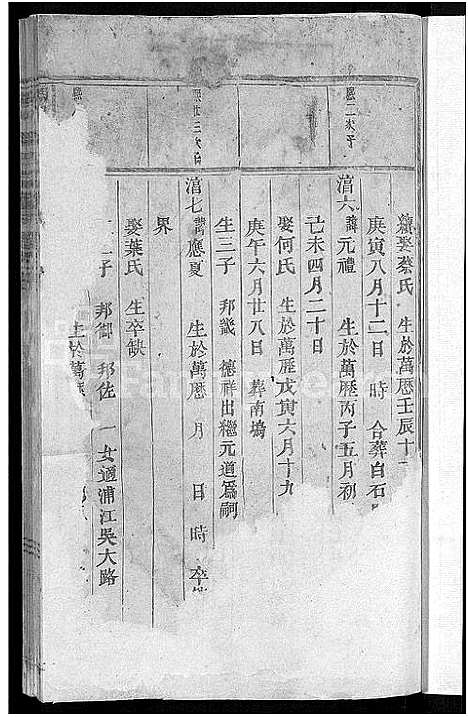 熙二次子
續娶蔡氏 生於萬厯壬辰十
庚寅八月十二日 時 合葬白石
涫六諱元禮 生於萬厯丙子五月初
己未四月二十日
娶何氏 生於萬厯戊寅六月十九
庚午六月廿八日 葬南塢
生三子 邦畿 德祥出繼元道爲嗣
熙廿三次子
涫七諱應夏 生於萬厯 月 日 時 卒
界
娶葉氏 生卒缺
二子 邦御 邦佐 一女適浦江吳大路
生於萬厯